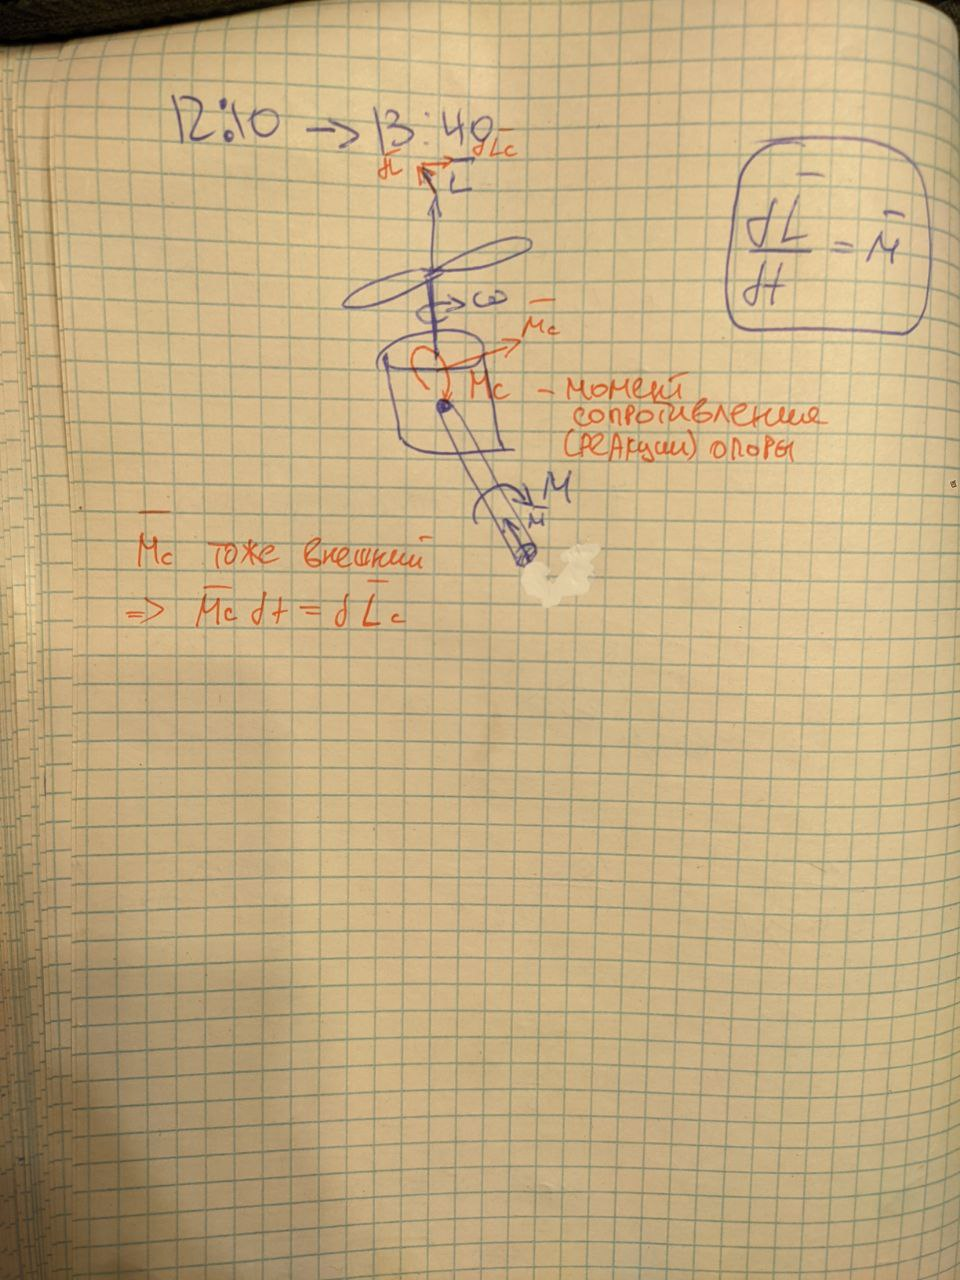 12:10 → 13:40
dL̄ dL̄c
L̄
dL̄/dt = M̄
ω
M̄c
Mc – момент
сопротивления
(реакции) опоры
M
M̄
M̄c тоже внешний
=> M̄c dt = dL̄c